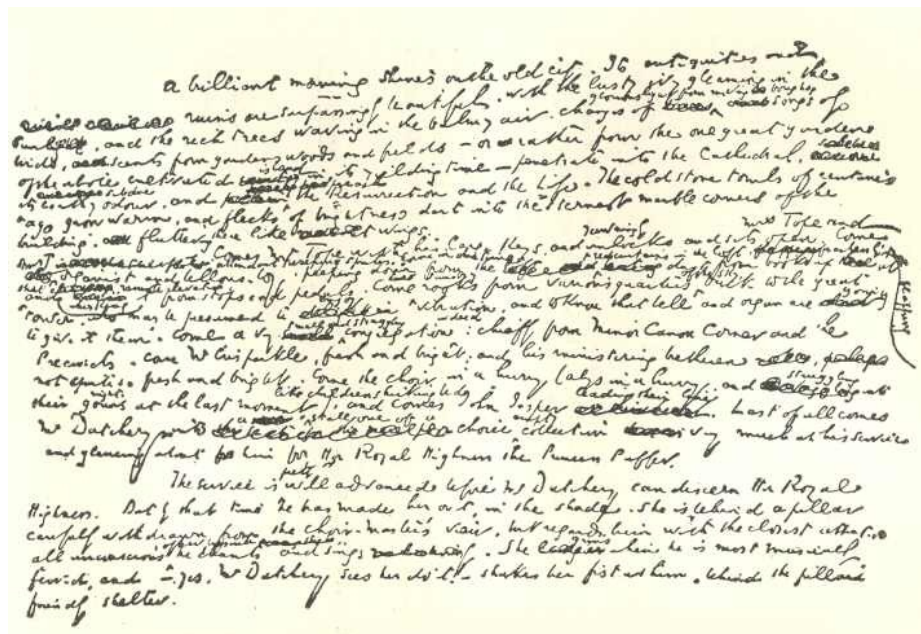 A brilliant morning shines on the old city. Its antiquities and
ruins are surpassingly beautiful, with the lusty ivy gleaming in the
glorious light from moving boughs
sunlight, and the rich trees waving in the balmy air. Changes of songs of
birds, scents from gardens woods and fields – or rather from the one great garden
island
of the whole cultivated in its yielding time – penetrate into the Cathedral, subdue
its earthy odour, and preach the Resurrection and the Life. The cold stone tombs of centuries
ago grow warm, and flecks of brightness dart into the sternest marble corners of the
building, fluttering there like wings.
Comes Mr Tope with his large keys, and yawningly unlocks and sets open. Come Mrs Tope and
in due time
organist and bellows boy peeping down from the red curtains in the loft
that remote elevation
and whisking it from stops and pedals. Come rooks from various quarters of the sky back to the great
tower, who may be presumed to enjoy vibration, and to know that bell and organ are going
small and straggling indeed
to give it them. Come a very congregation: chiefly from Minor Canon Corner and the
Precincts. Come Mr Crisparkle, fresh and bright; and his ministering brethren not
not quite so fresh and bright. Come the choir, in a hurry always in a hurry, and struggling into
night like children shirking bed leading their line
their gowns at the last moment, and comes John Jasper. Last of all comes
Mr Datchery into a stall, one of a choice collection very much at his service
and glancing about him for Her Royal Highness the Princess Puffer.
pretty
The service is well advanced before Mr Datchery can discern Her Royal
Highness. But by that time he has made her out, in the shade. She is behind a pillar
carefully withdrawn from the Choir-Master's view, but regards him with the closest attention
of her presence
all unconscious he chants and sings. She grins when he is most musically
fervid, and – yes, Mr Datchery sees her do it! – shakes her fist at him, behind the pillar's
friendly shelter.